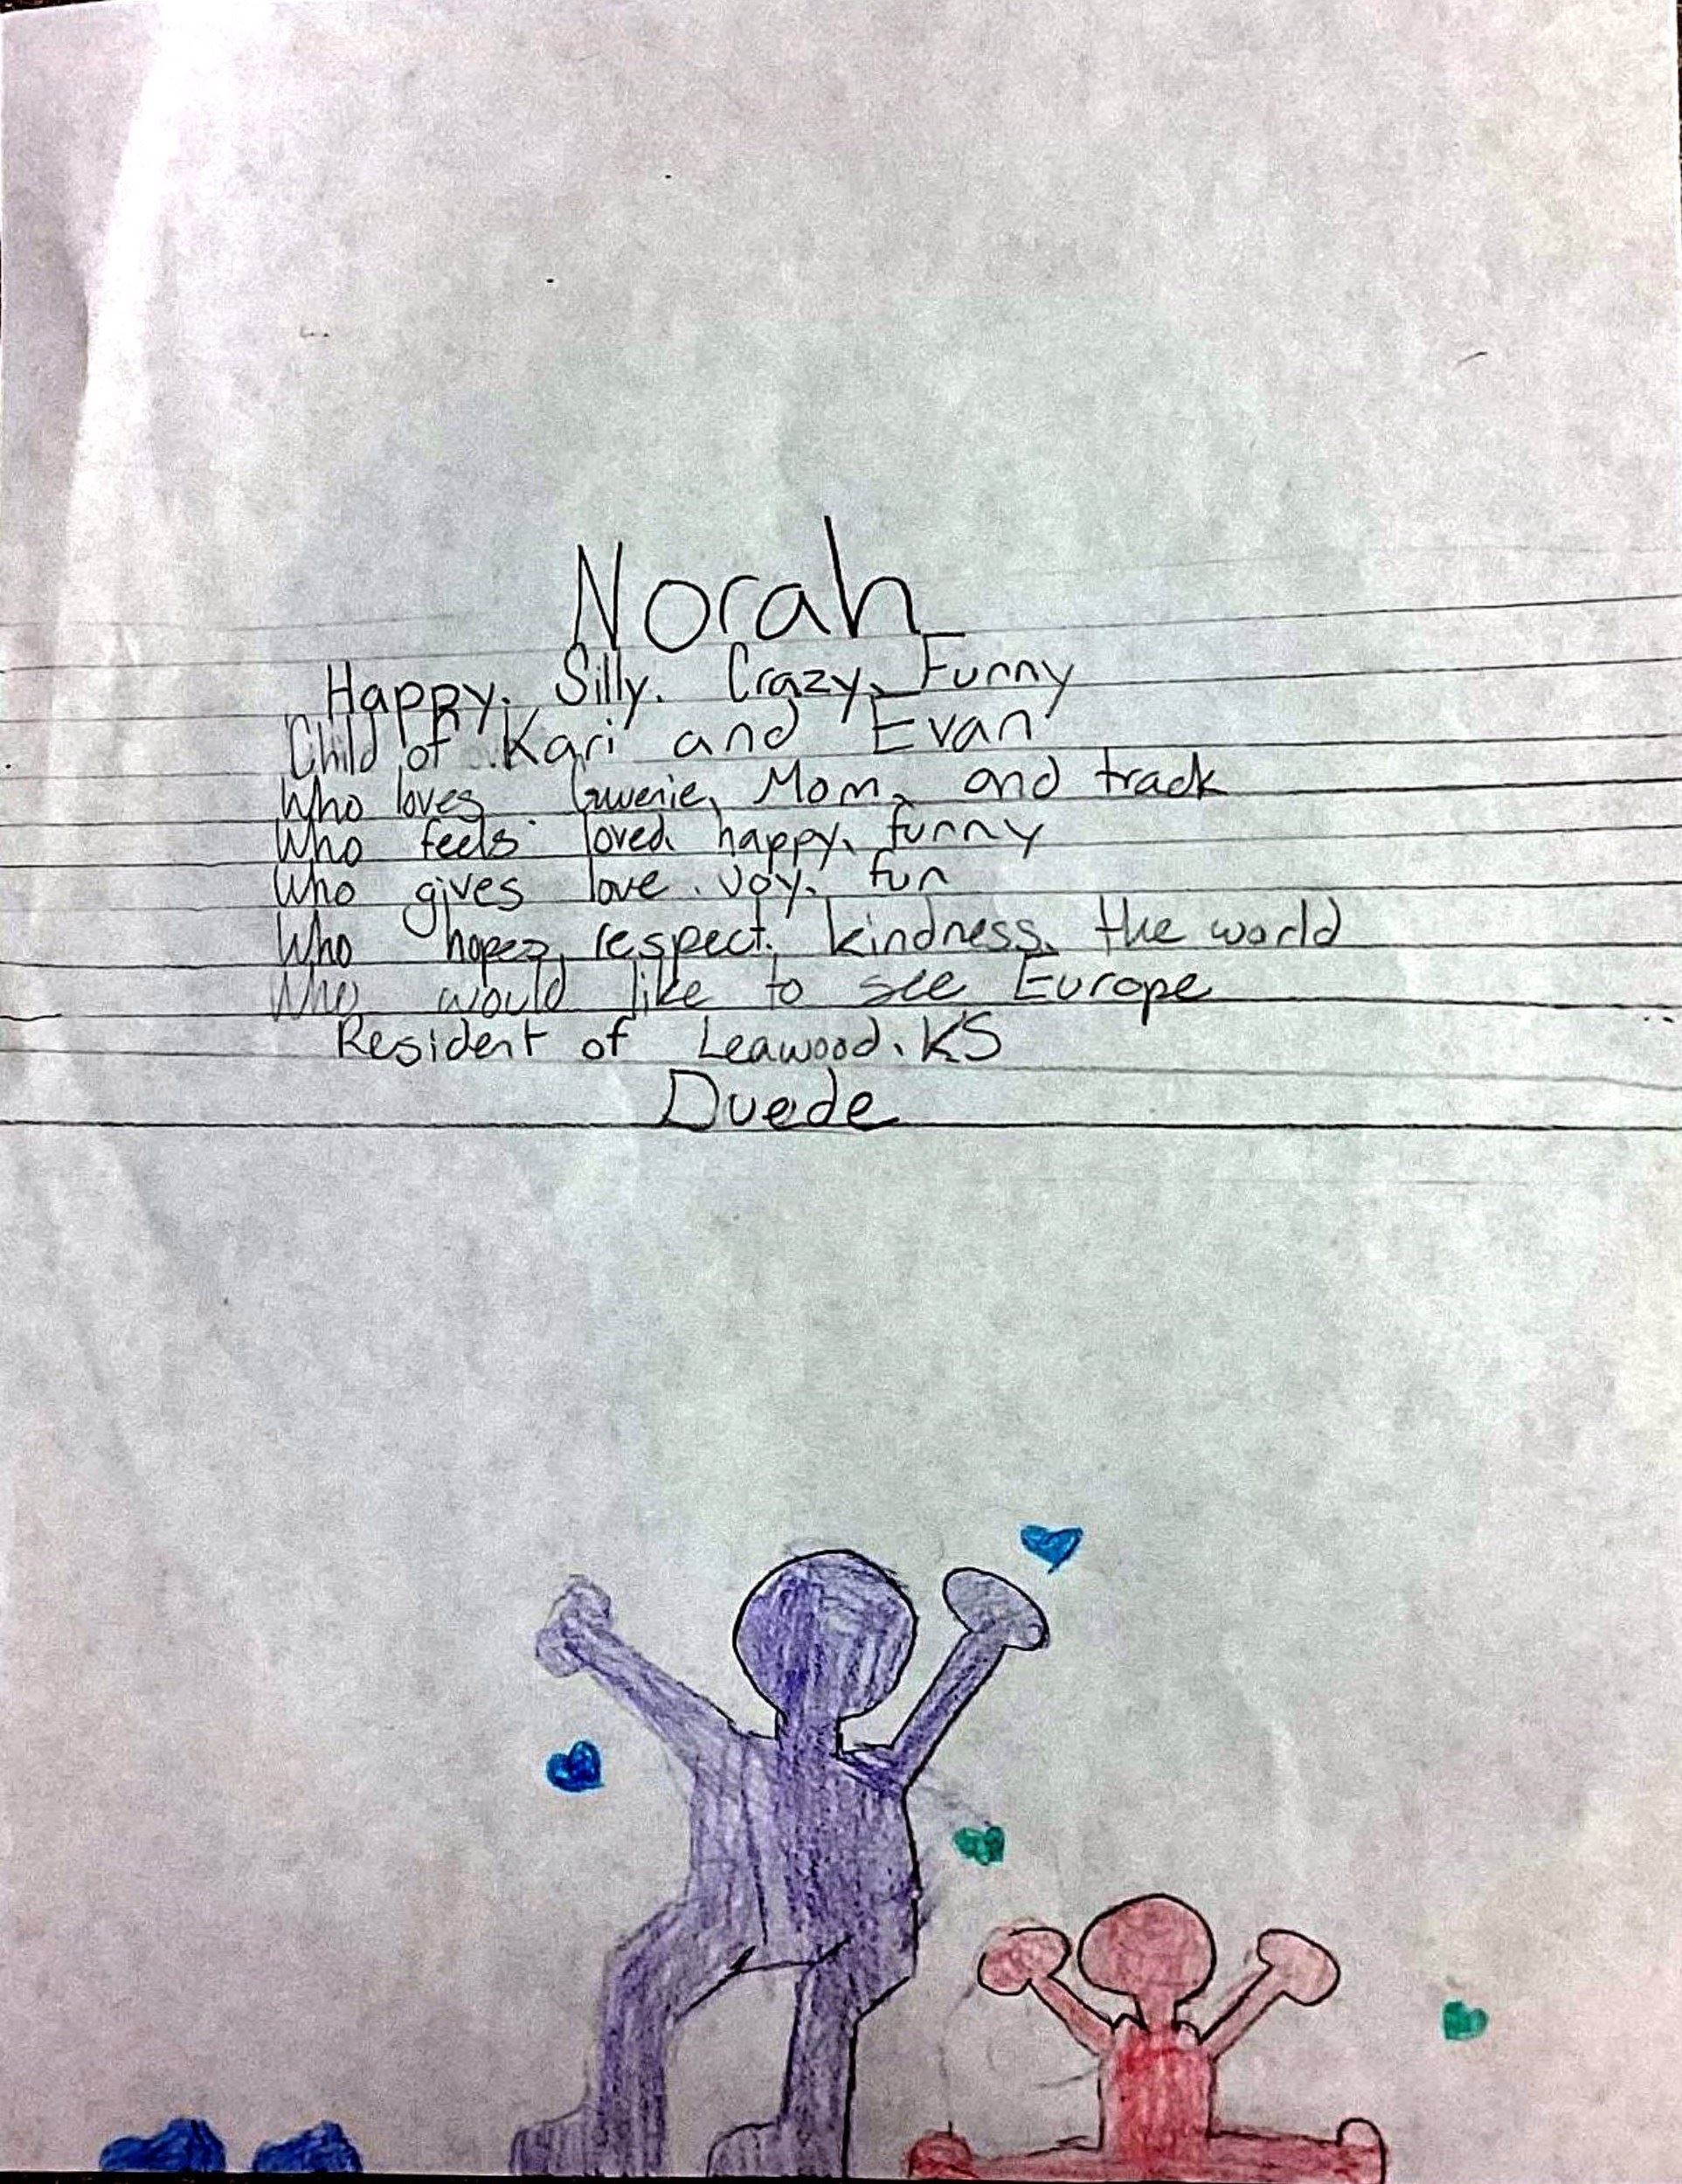 Norah
Happy, Silly, Crazy, Funny
Child of Kari and Evan
Who loves Gwenie, Mom, and track
Who feels loved, happy, funny
Who gives love, joy, fun
Who hopes, respect, kindness, the world
Who would like to see Europe
Resident of Leawood, KS
Duede